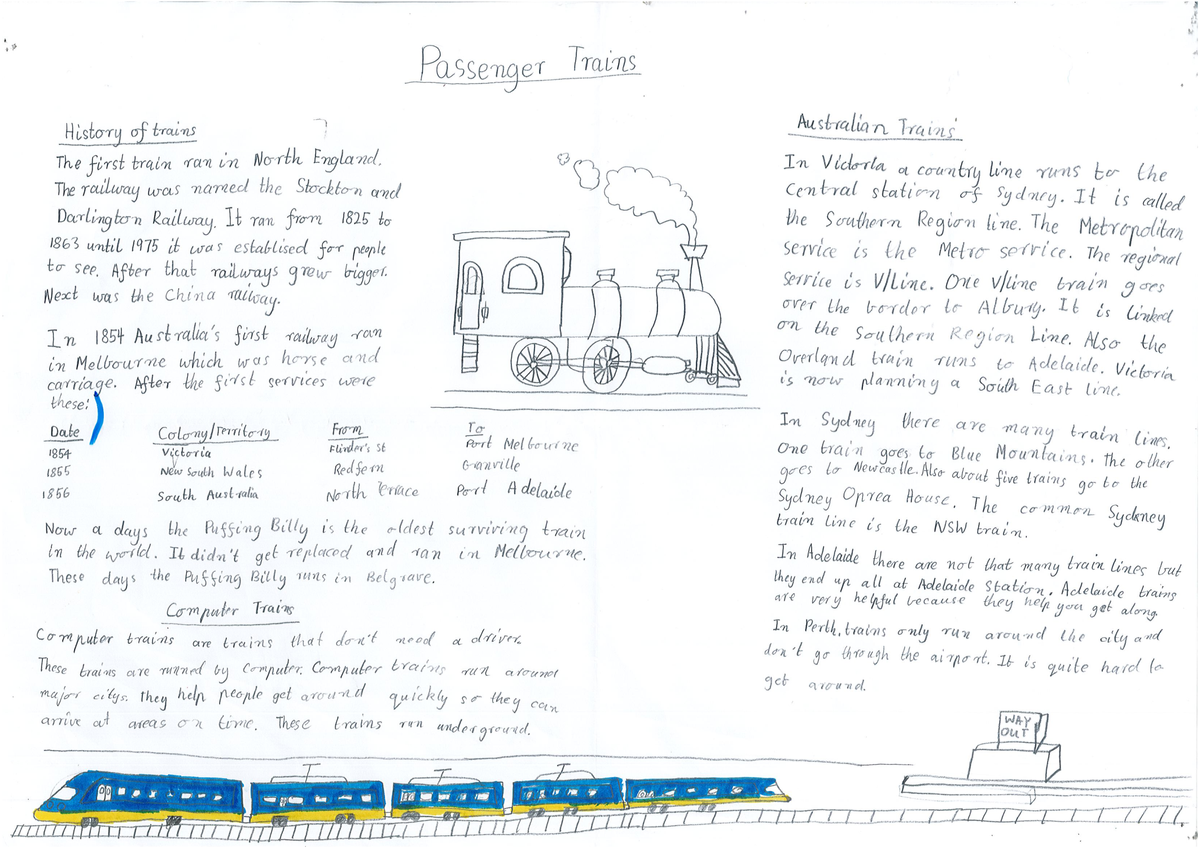 Passenger Trains
History of trains
The first train ran in North England.
The railway was named the Stockton and
Darlington Railway. It ran from 1825 to
1863 until 1975 it was establised for people
to see. After that railways grew bigger.
Next was the China railway.
In 1854 Australia's first railway ran
in Melbourne which was horse and
carriage. After the first services were
these:
Date Colony/Territory From To
1854 Victoria Flinder's St Port Melbourne
1855 New South Wales Redfern Granville
1856 South Australia North Terrace Port Adelaide
Now a days the Puffing Billy is the oldest surviving train
in the world. It didn't get replaced and ran in Melbourne.
These days the Puffing Billy runs in Belgrave.
Computer Trains
Computer trains are trains that don't need a driver.
These trains are runned by Computer. Computer trains run around
major citys. They help people get around quickly so they can
arrive at areas on time. These trains run underground.
Australian Trains
In Victoria a country line runs to the
Central station of Sydney. It is called
the Southern Region line. The Metropolitan
service is the Metro service. The regional
service is V/Line. One V/line train goes
over the border to Albury. It is linked
on the Southern Region Line. Also the
Overland train runs to Adelaide. Victoria
is now planning a South East line.
In Sydney there are many train lines.
One train goes to Blue Mountains. The other
goes to Newcastle. Also about five trains go to the
Sydney Oprea House. The common Sydney
train line is the NSW train.
In Adelaide there are not that many train lines but
they end up all at Adelaide Station. Adelaide trains
are very helpful because they help you get along.
In Perth, trains only run around the city and
don't go through the airport. It is quite hard to
get around.
WAY
OUT